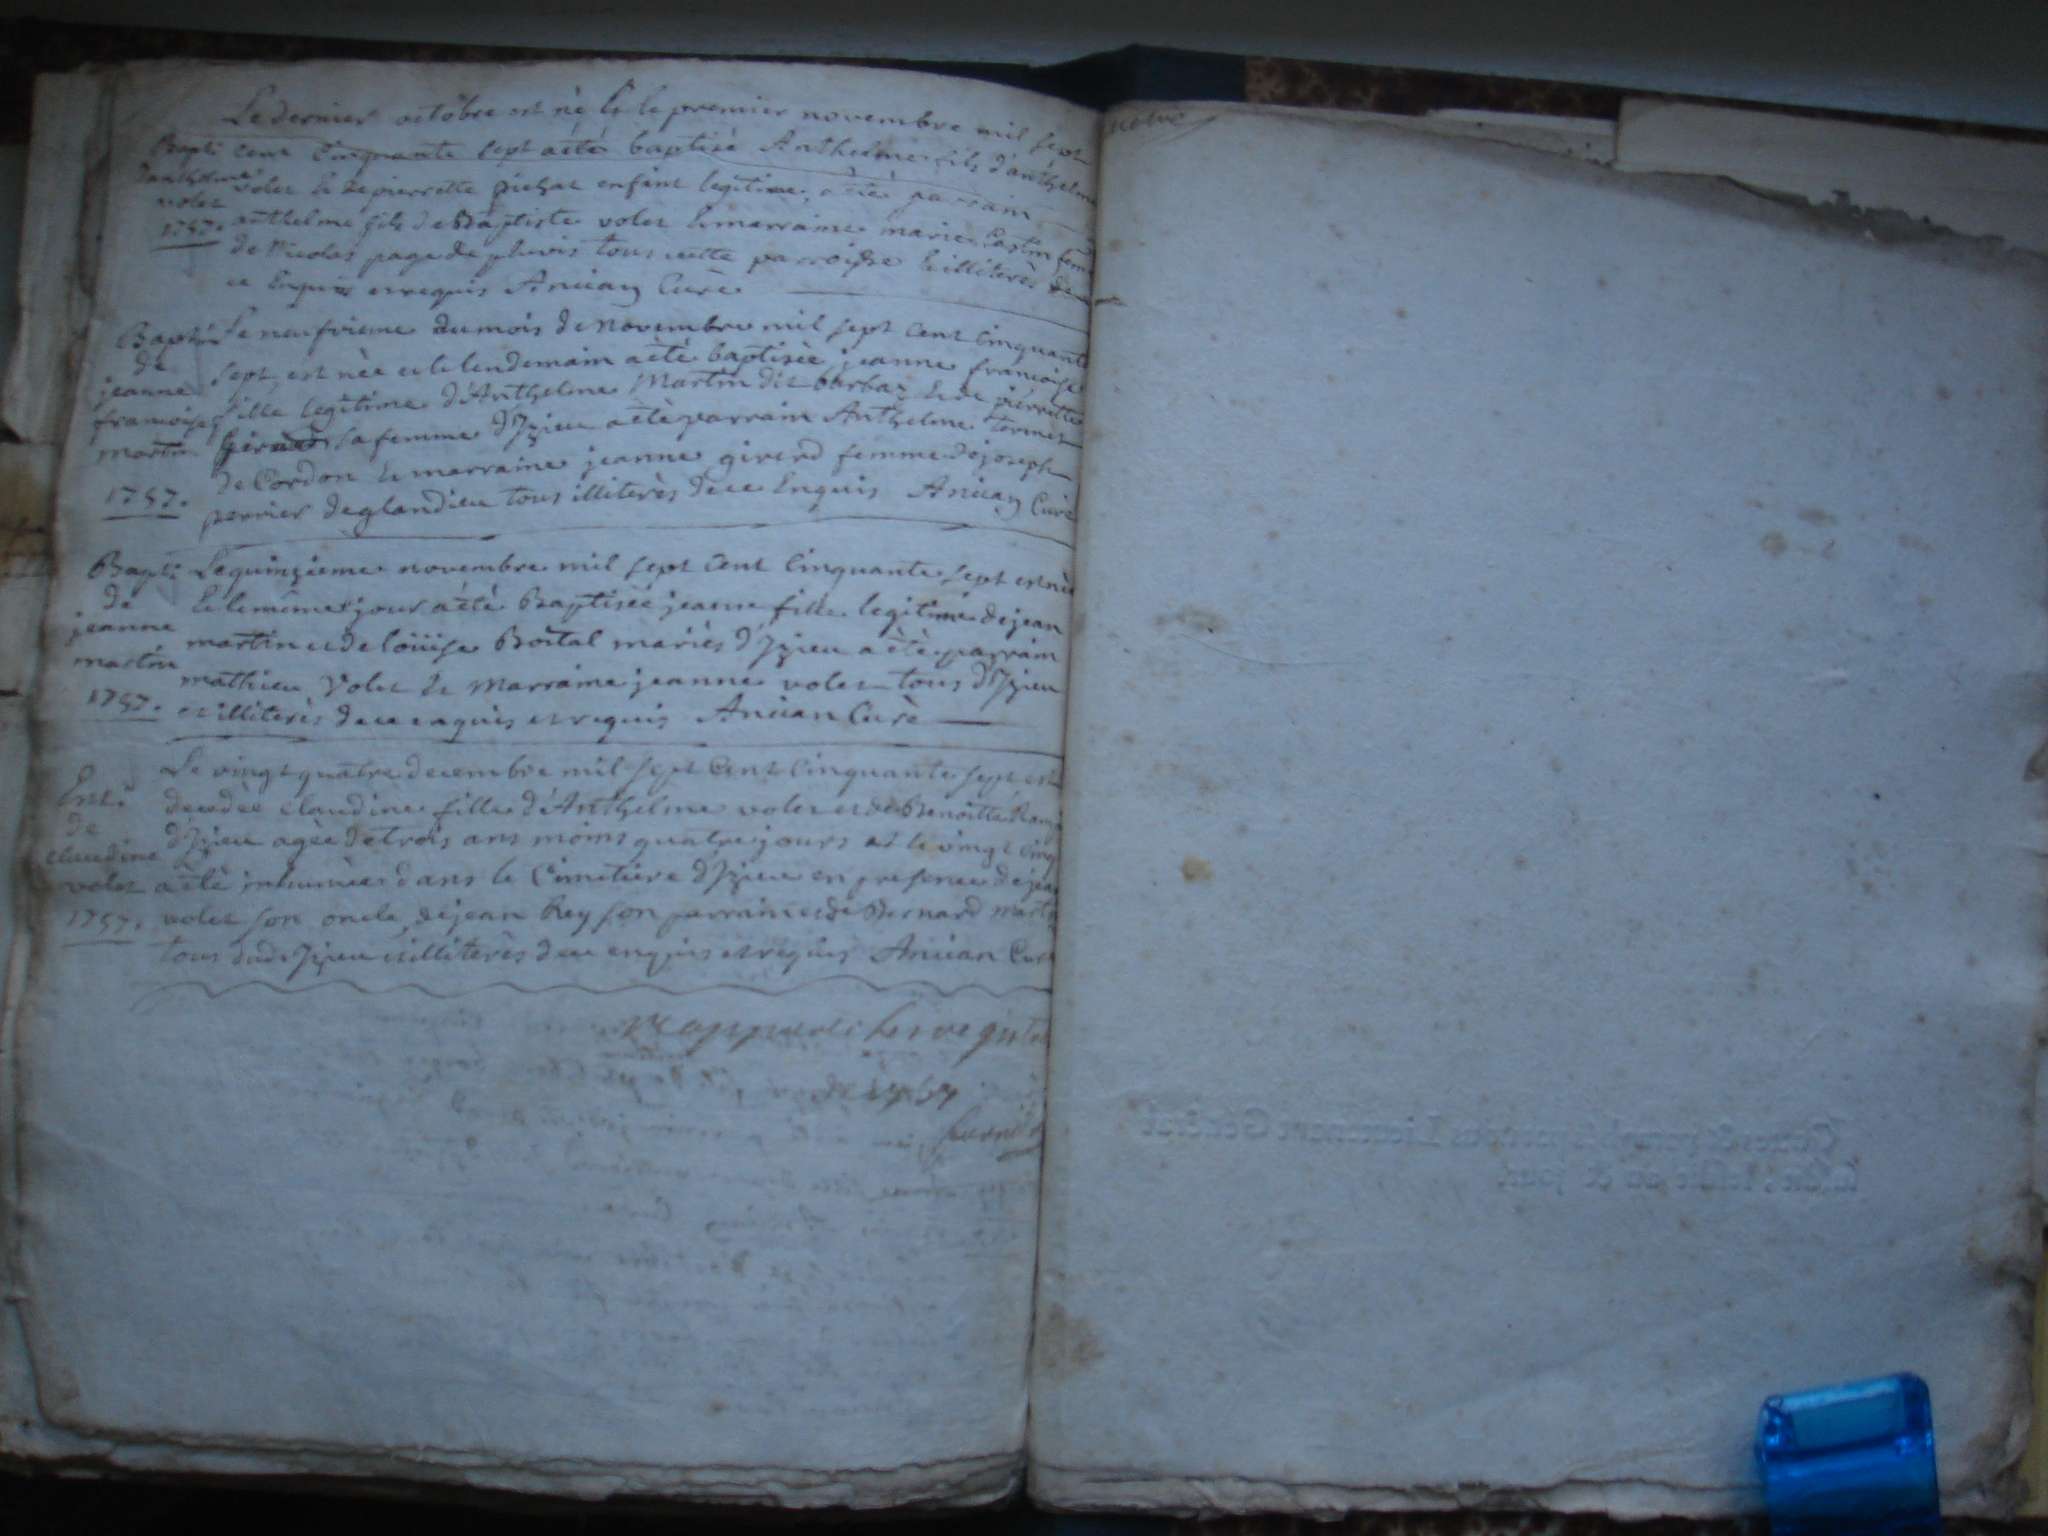 Le dernier octobre est né & le premier novembre mil sept
cent cinquante sept a èté baptisé Anthelme fils d'anthelme
volet & de pierrette pichat enfant legitime, a èté parrain
anthelme fils de Baptiste volet & marraine marie
de Nicolas page de tous cette parroisse & illiterès de
ce Enquis et requis Ancian Curè
Bapti
d'anthelme
volet
1757.
Le neufvieme du mois de novembre mil sept cent cinquante
sept, est née et le lendemain a èté baptisèe jeanne françoise
fille legitime d'Anthelme Martin dit barbaz & de pierrette
la femme d'Izieu a èté parrain Anthelme termet
de Cordon & marraine jeanne girerd femme de joseph
perrier de glandieu tous illiterès de ce Enquis Ancian Curè
Bapti
de
jeanne
françoise
martin
1757.
Le quinzieme novembre mil sept cent cinquante sept est nèe
& le même jour a èté Baptisèe jeanne fille legitime de jean
martin et de loüise Boital mariès d'Izieu a èté parrain
mathieu volet & Marraine jeanne volet tous d'Izieu
et illiterès de ce enquis et requis Ancian Curè
Bapti
de
jeanne
martin
1757.
Le vingt quatre decembre mil sept cent cinquante sept est
decedèe claudine fille d'Anthelme volet et de Benoitte
d'Izieu agèe de trois ans moins quatre jours et le vingt cinq
a èté inhumèe dans le Cimetiere d'Izieu en presence de jean
volet son oncle, de jean Rey son parrain et de Bernard martin
tous dud Izieu illiterès de ce enquis et requis Ancian Curè
Ent.
de
claudine
volet
1757.
de 1757